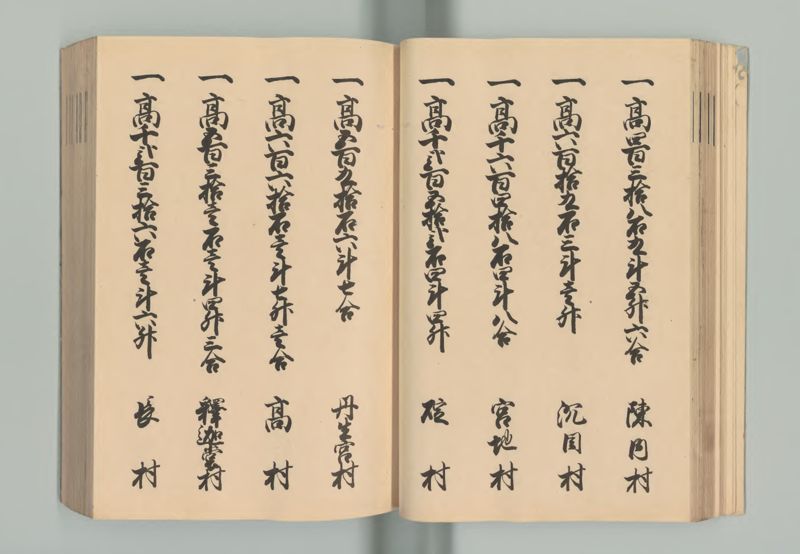 一高四百三拾八石九斗五升六合 陳内村
一高六百拾九石三斗壱升 沉目村
一高千六百四拾八石四斗八合 宮地村
一高千弐百五拾弐石四斗四升 碇村
一高五百九拾石六斗七合 丹生宮村
一高六百六拾石壱斗七升壱合 高村
一高五百三拾壱石壱斗四升三合 釋迦堂村
一高千弐百三拾六石壱斗六升 長村